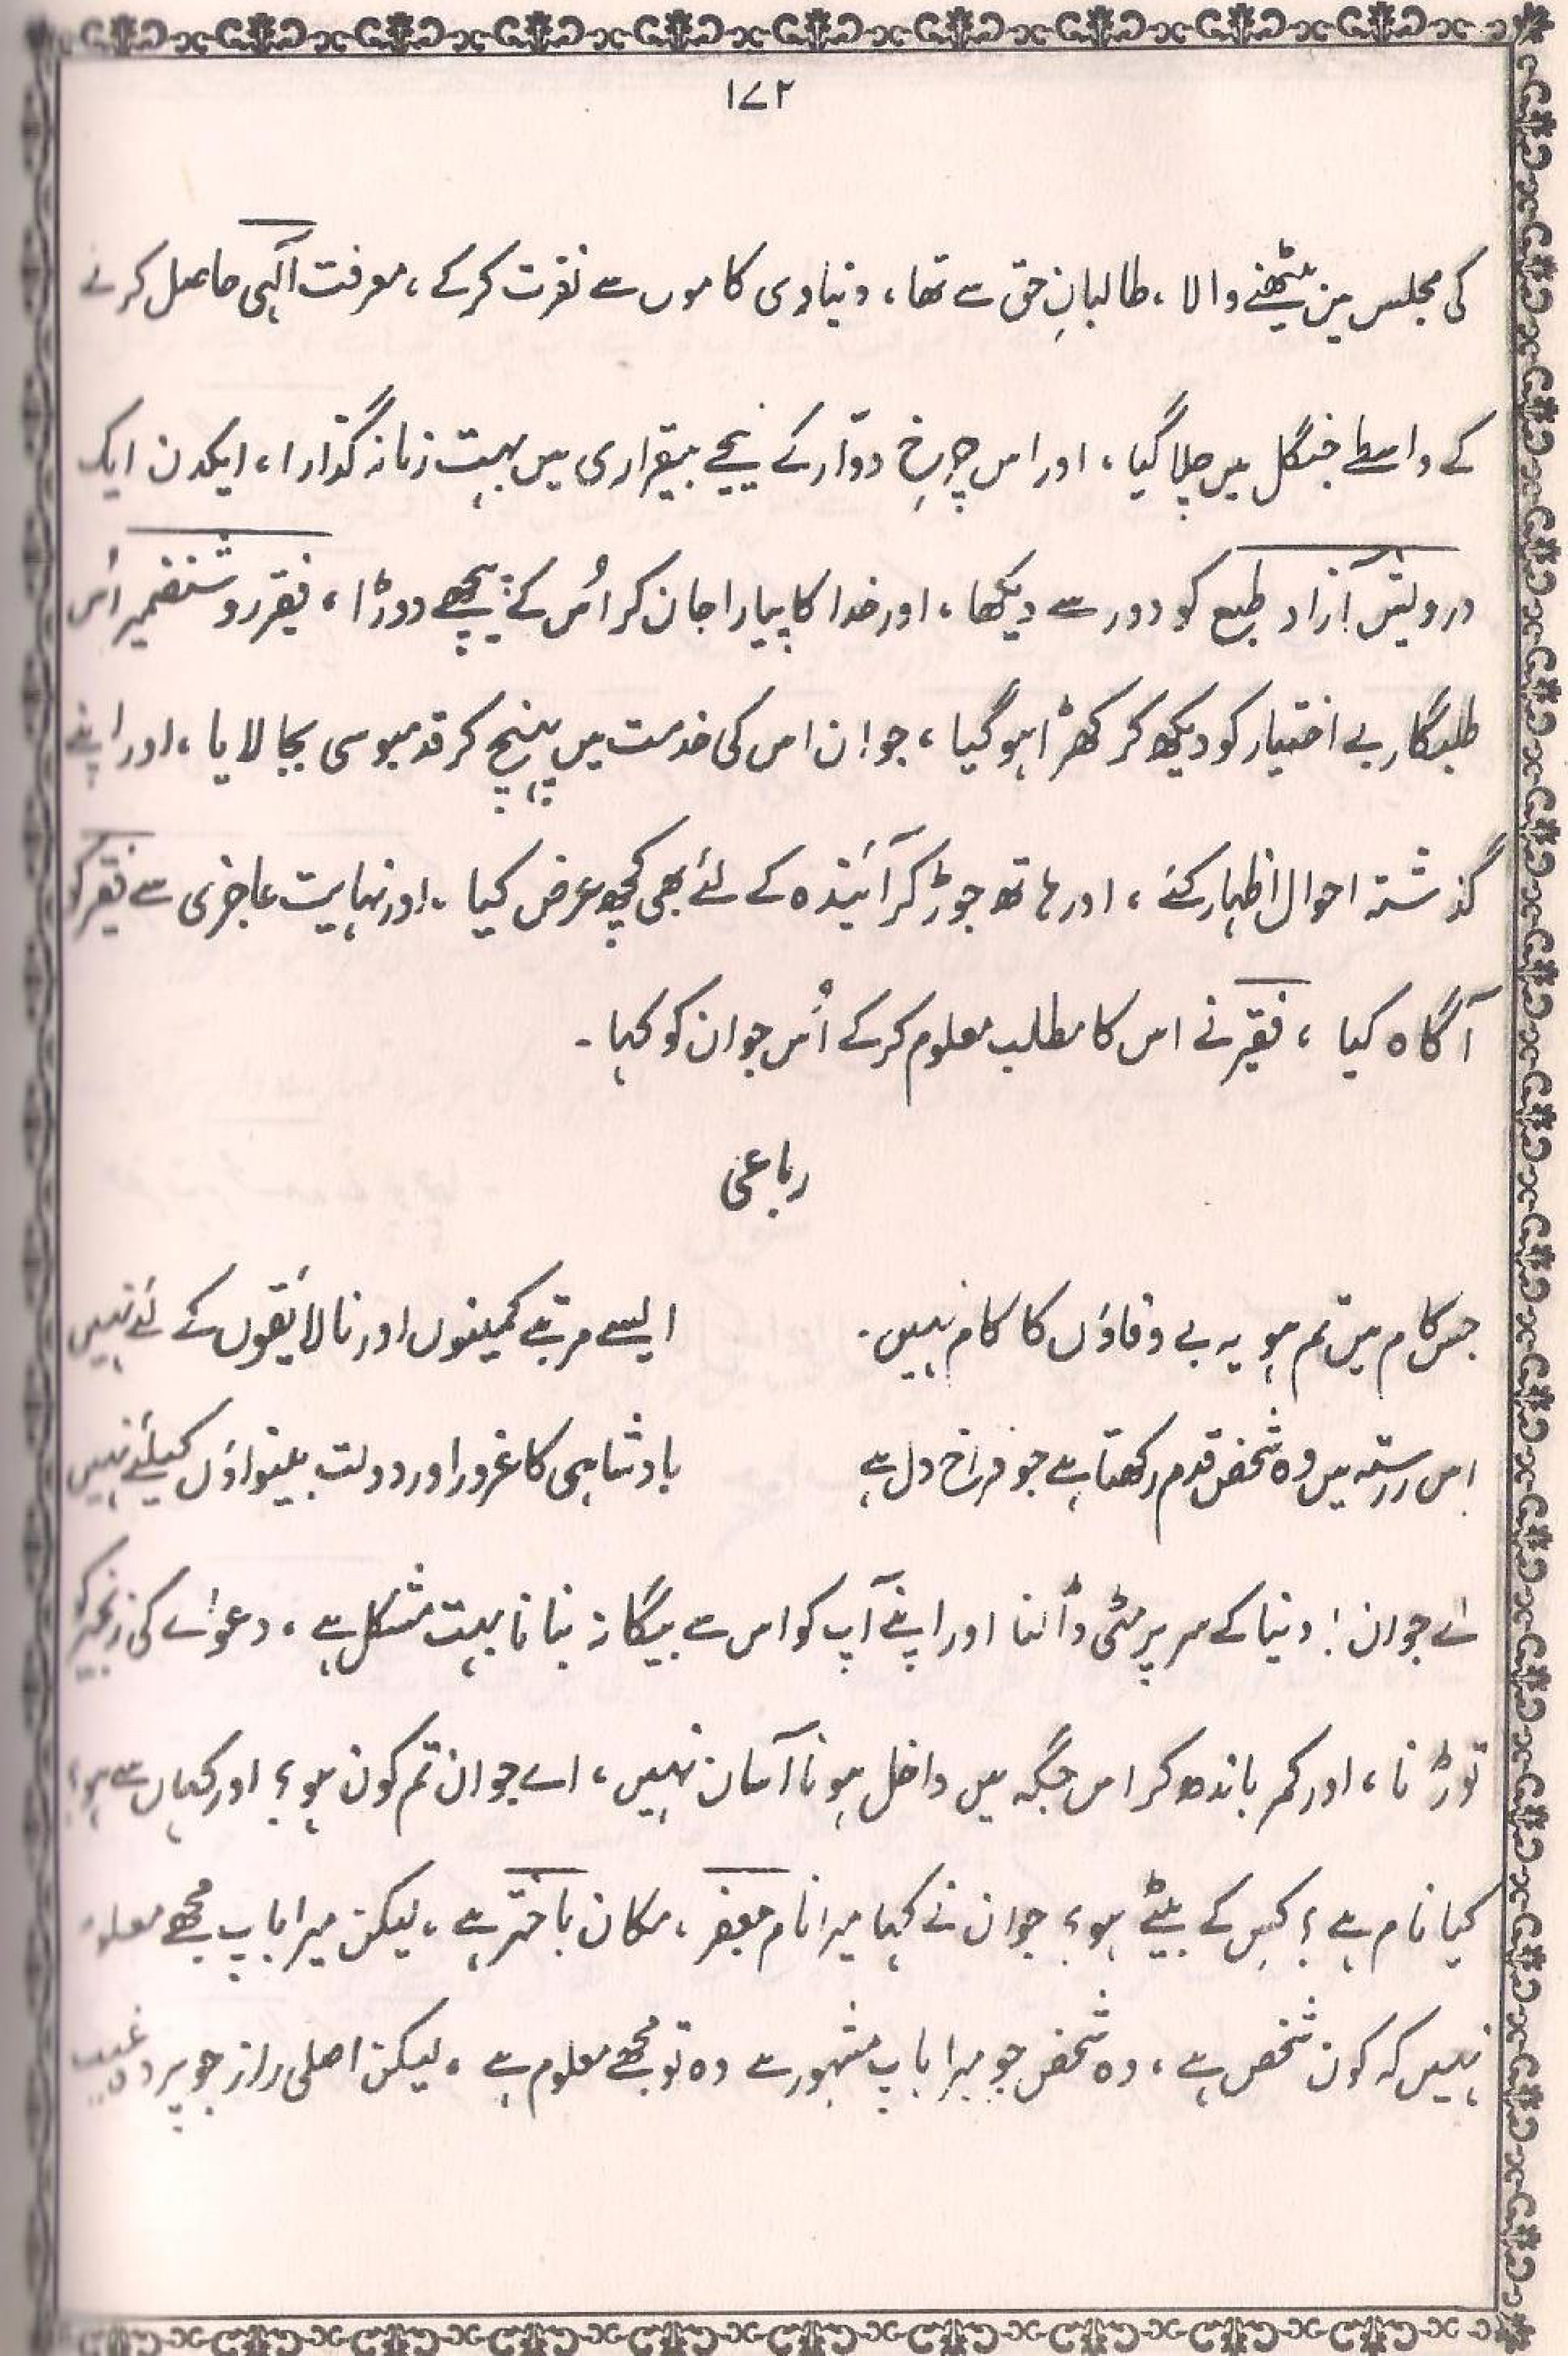 ۱۷۲
کی مجلس میں بیٹھنے والا ، طالبانِ حق سے تھا ، دنیاوی کاموں سے نفرت کرکے ، معرفت الٰہی حاصل کرنے
کے واسطے جنگل میں چلا گیا ، اور اس چرخِ دوّار کے نیچے بیقراری میں بہت زمانہ گذارا ، ایکدن ایک
درویش آزاد طبع کو دور سے دیکھا ، اور خدا کا پیارا جان کر اُس کے پیچھے دوڑا ، فقیر روشنضمیر اُس
طلبگار بے اختیار کو دیکھ کر کھڑا ہو گیا ، جوان اس کی خدمت میں پہنچ کر قدمبوسی بجا لایا ، اور اپنے
گذشتہ احوال اظہار کئے ، اور ہاتھ جوڑ کر آئیندہ کے لئے بھی کچھ عرض کیا ، اور نہایت عاجزی سے فقیر کو
آگاہ کیا ، فقیر نے اس کا مطلب معلوم کرکے اُس جوان کو کہا ۔
رباعی
جس کام میں تم ہو یہ بے وفاؤں کا کام نہیں ۔ ایسے مرتبے کمینوں اور نالائیقوں کے لئے نہیں
اس رستہ میں وہ شخص قدم رکھتا ہے جو فراخ دل ہے بادشاہی کا غرور اور دولت بینواؤں کیلئے نہیں
اے جوان ! دنیا کے سر پر مٹی ڈالنا اور اپنے آپ کو اس سے بیگانہ بنانا بہت مشکل ہے ، دعوٰے کی زنجیر کو
توڑنا ، اور کمر باندھ کر اس جگہ میں داخل ہونا آسان نہیں ، اے جوان تم کون ہو ؟ اور کہاں سے ہو ؟
کیا نام ہے ؟ کِس کے بیٹے ہو ؟ جوان نے کہا میرا نام جعفر ، مکان باختر ہے ، لیکن میرا باپ مجھے معلوم
نہیں کہ کون شخص ہے ، وہ شخص جو میرا باپ مشہور ہے وہ تو مجھے معلوم ہے ، لیکن اصلی راز جو پردہ غیب